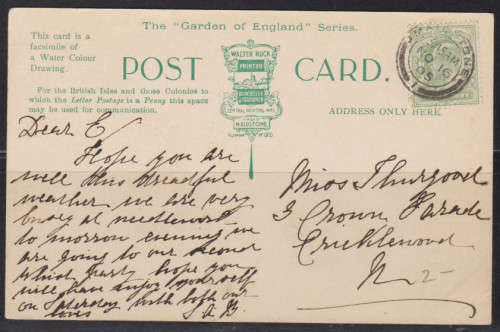 The "Garden of England" Series.
This card is a
facsimile of
a Water Colour
Drawing.
POST CARD.
WALTER RUCK
PRINTER
MAIDSTONE
For the British Isles and those Colonies to
which the Letter Postage is a Penny this space
may be used for communication.
ADDRESS ONLY HERE
Dear E
Hope you are
well this dreadful
weather we are very
busy at needlework
to morrow evening we
are going to our second
whist party hope you
will have enjoy yourself
on Saturday with both our
loves
Miss Thurgood
3 Crown Parade
Cricklewood
N
2-